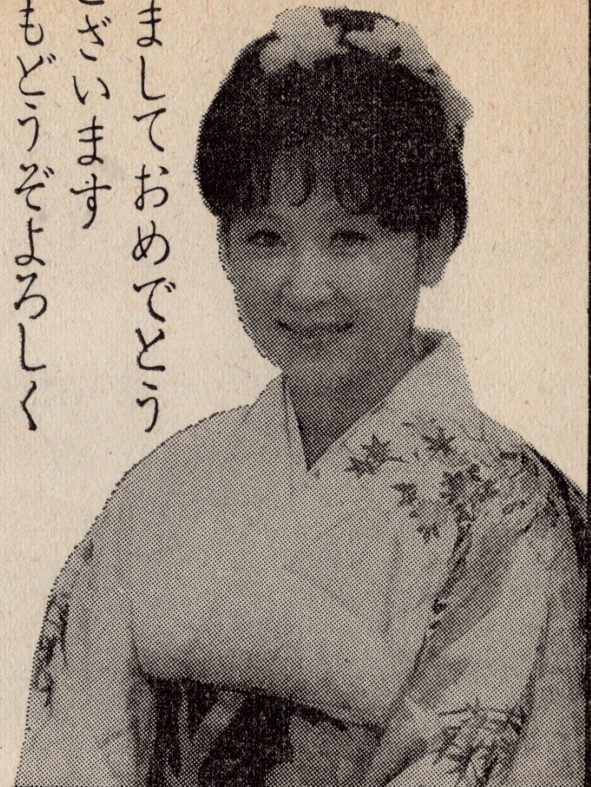 ましておめでとう
ざいます
もどうぞよろしく